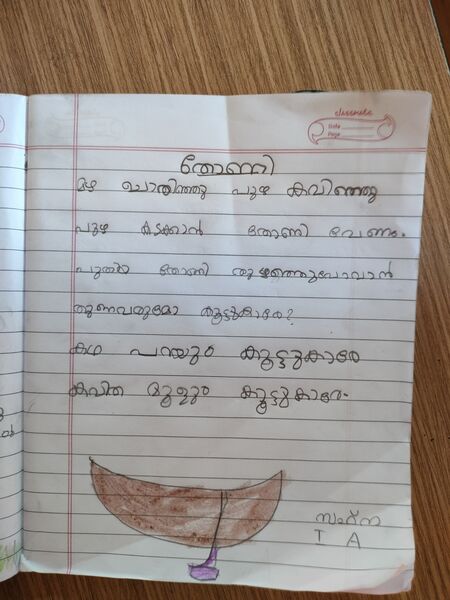 classmate
Date
Page
തോണി
മഴ ചാറിഞ്ഞു പുഴ കവിഞ്ഞു
പുഴ കടക്കാൻ തോണി വേണം.
പുതിയ തോണി തുഴഞ്ഞുപോവാൻ
തുണവരുമോ കൂട്ടുകാരേ?
കഥ പറയും കൂട്ടുകാരേ
കവിത മൂളും കൂട്ടുകാരേ.
I A